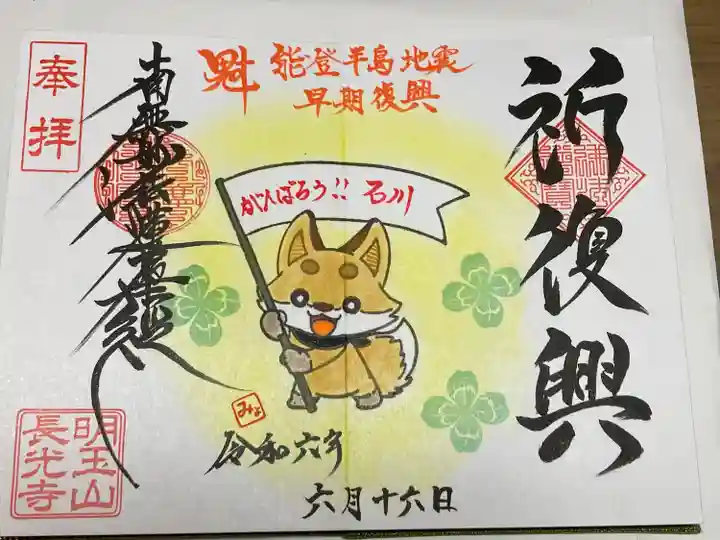 祈復興
魁
能登半島地震
早期復興
がんばろう!! 石川
みょ
令和六年
六月十六日
奉拝
南無妙法蓮華経
明玉山
長光寺